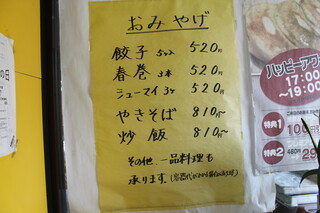 おみやげ
餃子 5ヶ入 520円
春巻 3本 520円
シューマイ 3ヶ 520円
やきそば 810円〜
炒飯 810円〜
その他、一品料理も
承ります。
の日
ハッピーアワ
17:00
〜19:00
特典1
100円
特典2
480円
29